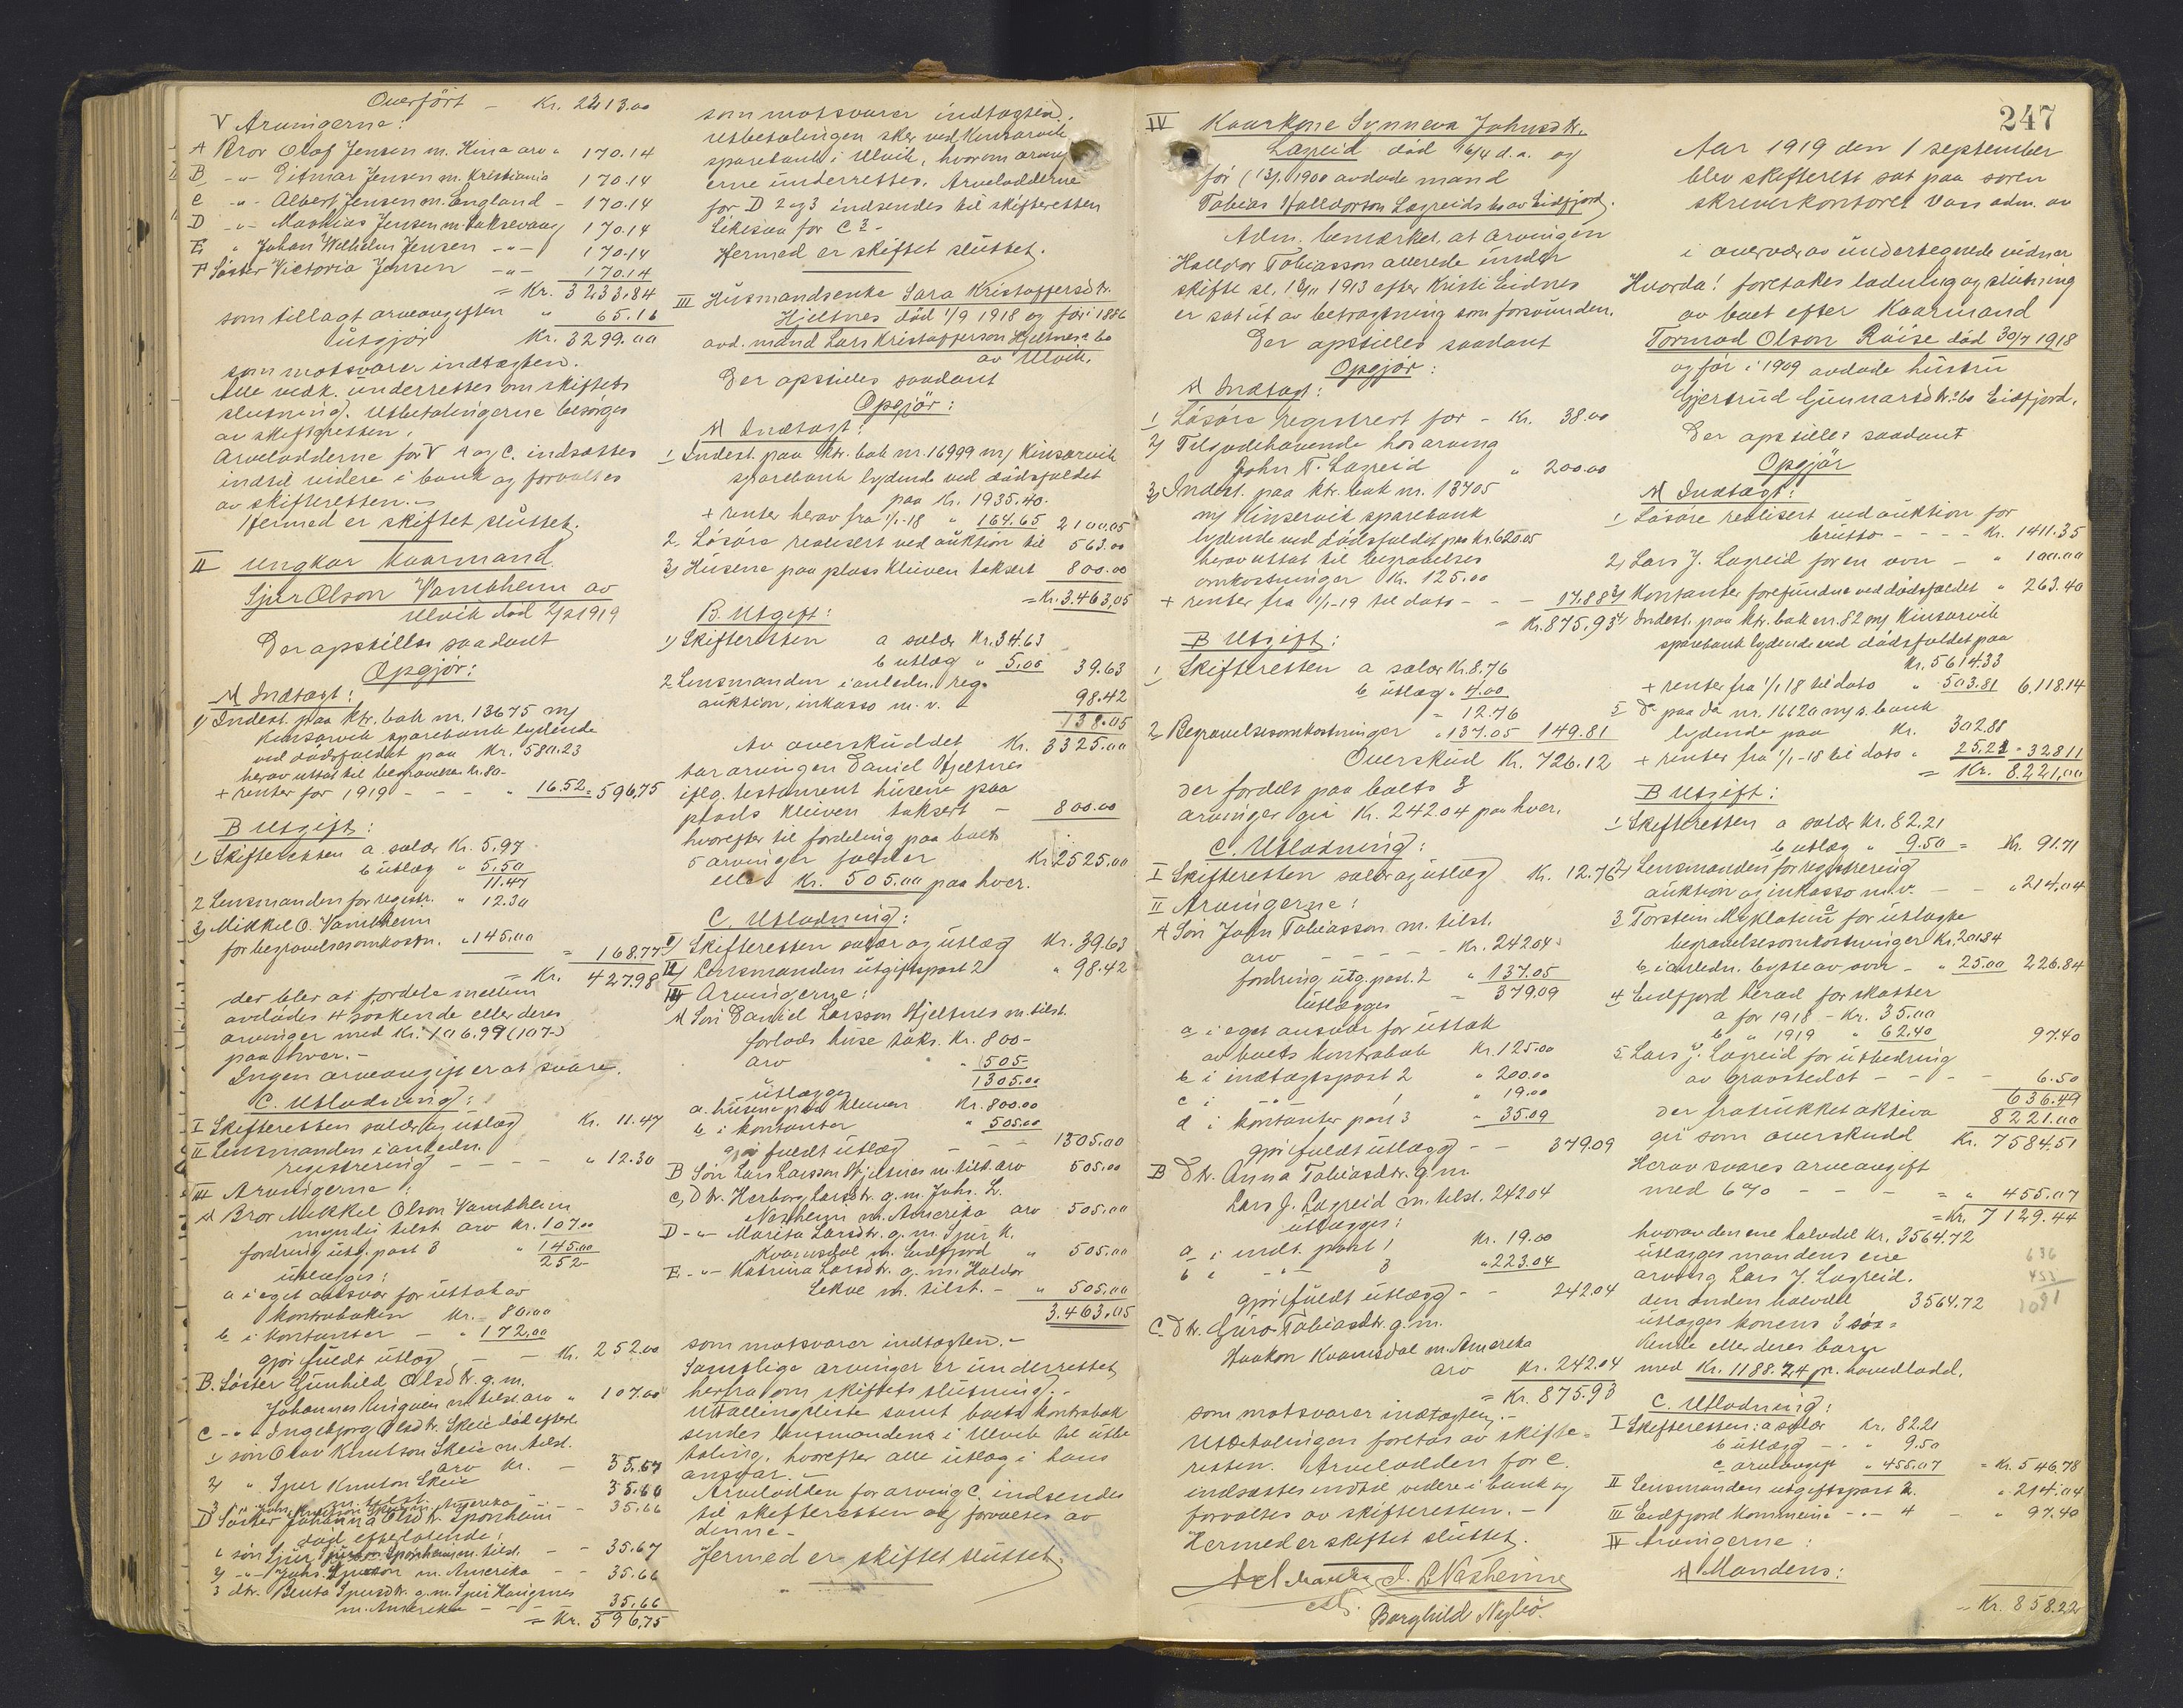 Overført - Kr. 2213.00
V Arvingerne:
A Bror Olaf Jensen m. Kina arv " 170.14
B -"- Eitmar Jensen m. Kristiania 170.14
C -"- Albert Jensen m. England - 170.14
D -"- Mathias Jensen m. Laksevaag 170.14
E " Johan Wilhelm Jensen -"- 170.14
F Søster Victoria Jensen -"- 170.14
= Kr. 3233.84
som tillagt arveavgiften " 65.16
utgjør Kr. 3299.00
som motsvarer indtægten.
Alle vedk. underrettes om skiftets
slutning. Utbetalingerne besørges
av skifteretten.
Arvelodderne for V A og C. indsættes
indtil videre i bank og forvaltes
av skifteretten.-
Hermed er skiftet sluttet.
II Ungkar kaarmand
Sjur Olson Vambheim av
Ulvik død 2/2 1919
Der opstilles saadant
Opgjør:
A Indtægt:
1) Indest. paa ktr. bok nr. 13675 m/
Kinsarvik sparebank lydende
ved dødsfaldet paa Kr. 580.23
herav uttat til begravelse Kr. 80-
+ renter for 1919 - - - " 16.52 = 596.75
B Utgift:
1 Skifteretten a salær Kr. 5.97
b utlæg " 5.50
11.47
2 Lensmanden for registr. " 12.30
3) Mikkel O. Vambheim
for begravelsesomkostn. " 145.00 = 168.77
= Kr. 427.98
der blir at fordele mellem
avdødes 4 søskende eller deres
arvinger med Kr. 106.99 (107-)
paa hver.-
Ingen arveavgift er at svare.
C. Utlodning:
I Skifteretten salær og utlæg Kr. 11.47
II Lensmanden i anledn.
registrering - - - - " 12.30
III Arvingerne:
A Bror Mikkel Olson Vambheim
myndig tilst. arv Kr. 107.00
fordring utg. post 3 " 145.00
252-
utlægges:
a i eget ansvar for uttak av
kontraboken Kr. 80.00
b i kontanter - " 172.00
gjør fuldt utlæg - - Kr. 252.00
B. Søster Gunhild Olsdtr. g. m.
Johannes m. tilst. arv " 107.00
C -"- Ingebjørg Olsdtr. Skeie død efterl.
1) søn Olav Knutson Skeie m. tilst.
arv Kr. - 35.67
2) " Sjur Knutson Skeie
m. tilst. 35.66
3 " Joh. Knutson Skeie m. Amerika - 35.66
D Søster Johanna Olsdtr. Sponheim
død efterlatende:
1 søn Sjur Sjurson Sponheim m. tilst. - - 35.67
2) -"- Johs. Sjurson m. Amerika - - 35.66
3 dtr. Brita Sjursdtr. g. m. Sjur Haugsnes
m. Amerika - - - 35.66
= Kr. 596.75
som motsvarer indtægten.
Utbetalingen sker ved Kinsarvik
sparebank i Ulvik, hvorom arving
erne underrettes. Arvelodderne
for D 2 og 3 indsendes til skifteretten
Likesaa for C 3-
Hermed er skiftet sluttet.
III Husmandsenke Sara Kristoffersdtr.
Hjeltnes død 1/9 1918 og før i 1886
avd. mand Lars Kristofferson Hjeltnes's bo
av Ulvik.
Der opstilles saadant
Opgjør:
A Indtægt:
1 Indest. paa ktr. bok nr. 16999 m/ Kinsarvik
sparebank lydende ved dødsfaldet
paa Kr. 1935.40.
+ renter herav fra 1/1-18 " 164.65 2100.05
2. Løsøre realisert ved auktion til 563.00
3) Husene paa plass Kleiven taksert 800.00
= Kr. 3.463,05
B. Utgift:
1) Skifteretten a salær Kr. 34.63
b utlæg " 5.00 39.63
2 Lensmanden i anledn. reg.
auktion, inkasso m. v. - 98.42
138.05
Av overskuddet Kr. 3325.00
tar arvingen Daniel Hjeltnes
iflg. testament husene paa
plads Kleiven taksert - 800.00
hvorefter til fordeling paa boets
5 arvinger falder Kr. 2525.00
eller Kr. 505.00 paa hver.
C. Utlodning:
I) Skifteretten salær og utlæg Kr. 39.63
II) Lensmanden utgiftspost 2 " 98.42
III) Arvingerne:
A Søn Daniel Larsson Hjeltnes m. tilst.
forlods huse taks. Kr. 800-
arv " 505-
1305.00
utlægges
a. husene paa Kleiven Kr. 800.00
b i kontanter " 505.00
gjør fuldt utlæg - - 1305.00
B Søn Lars Larsson Hjeltnes m. tilst. arv 505.00
C) Dtr. Herborg Larsdtr. g. m. Johs. L.
Nesheim m. Amerika arv 505.00
D -"- Marita Larsdtr. g. m. Sjur K.
Kvamsdal m. Eidfjord " 505.00
E -"- Katrina Larsdtr. g. m. Haldor
Lekve m. tilst. - " 505.00
3.463,05
som motsvarer indtægten.-
Samtlige arvinger er underrettet
herfra om skiftets slutning.-
Uttællingsliste samt boets kontrabok
sendes lensmanden i Ulvik til utbe
taling, hvorefter alle utlæg i hans
ansvar.-
Arvelodden for arving C. indsendes
til skifteretten og forvaltes av
denne-
Hermed er skiftet sluttet.
247
IV Kaarkone Synneva Johnsdtr.
Lægreid død 16/4 d. a. og
før (13/1 1900 avdøde mand
Tobias Halldorson Lægreids bo av Eidfjord.
Adm. bemærket, at arvingen
Halldor Tobiasson allerede under
skifte sl. 18/11 1913 efter Kristi Eidnes
er sat ut av betragtning som forsvunden.
Der opstilles saadant
Opgjør:
A Indtægt:
1 Løsøre registrert for - Kr. 38.00
2) Tilgodehavende hos arving
John T. Lægreid " 200.00
3) Indest. paa ktr. bok nr. 13705
m/ Kinservik sparebank
lydende ved dødsfaldet paa Kr. 620.05
herav uttat til begravelses
omkostninger Kr. 125.00
+ renter fra 1/1-19 til dato - - - 17.88
= Kr. 875.93
B Utgift:
1 Skifteretten a salær Kr. 8.76
b utlæg " 4.00
= 12.76
2 Begravelsesomkostninger " 137.05 149.81
Overskud Kr. 726.12
der fordelt paa boets 3
arvinger gir Kr. 242.04 paa hver.
C. Utlodning:
I Skifteretten salær og utlæg Kr. 12.76
II Arvingerne:
A Søn John Tobiasson m. tilst.
arv - - - - - Kr. 242.04
fordring utg. post. 2 " 137.05
utlægges = 379.09
a i eget ansvar for uttak
av boets kontrabok Kr. 125.00
b i indtægtspost 2 " 200.00
c i -"- 1 " 19.00
d i kontanter post 3 " 35.09
gjør fuldt utlægg - - 379.09
B Dtr. Anna Tobiasdtr. g. m.
Lars J. Lægreid m. tilst. 242.04
utlægges:
a i indt. post 1 Kr. 19.00
b i -"- 3 " 223.04
gjør fuldt utlægg - - 242.04
C. Dtr. Guro Tobiasdtr. g. m.
Haakon Kvamsdal m. Amerika
arv Kr. 242.04
= Kr. 875.93
som motsvarer indtægten.-
Utbetalingen foretas av skifte-
retten. Arvelodden for C.
indsættes indtil videre i bank og
forvaltes av skifteretten.-
Hermed er skiftet sluttet.
Nesheim
Borghild Nybø.
Aar 1919 den 1 september
blev skifterett sat paa soren
skriverkontoret Voss adm. av
i overvær av undertegnede vidner
Hvorda! foretokes lodning og slutning
av boet efter Kaarmand
Tormod Olson Røise død 30/7 1918
og før i 1909 avdøde hustru
Gjertrud Gunnarsdtr.'s bo Eidfjord.
Der opstilles saadant
Opgjør
A Indtægt:
1 Løsøre realisert ved auktion for
brutto - - - - Kr. 1411.35
2) Lars J. Lægreid for en ovn - " 100.00
3) Kontanter forefundne ved dødsfaldet " 263.40
4) Indest. paa ktr. bok nr. 82 m/ Kinsarvik
sparebank lydende ved dødsfaldet paa
Kr. 5614.33
+ renter fra 1/1 18 til dato " 503.81 6,118.14
5 Do paa do nr. 16620 m/ s. bank
lydende paa Kr. 302.88
+ renter fra 1/1-18 til dato " 25.23 = 328.11
= Kr. 8.221,00
B Utgift:
1 Skifteretten a salær Kr. 82.21
b utlæg " 9.50 = Kr. 91.71
2) Lensmanden for registrering
auktion og inkasso m. v. - - " 214.04
3 Torstein Myklatun a for utlagte
begravelsesomkostninger Kr. 201.84
b i anledn. bytte av ovn - " 25.00 226.84
4 Eidfjord herad for skatter
a for 1918 - Kr. 35.00
b " 1919 " 62.40 97.40
5 Lars J. Lægreid for utbedring
av gravstedet - - - - 6.50
636.49
der fratrukket aktiva 8221.00
gir som overskudd Kr. 7584.51
Herav svares arveavgift
med 6 % - - - = " 455.07
= Kr. 7129.44
hvorav den ene halvdel Kr. 3564.72
utlægges mandens ene
arving Lars J. Lægreid.
den anden halvdel 3564.72
utlægges konens 3 søs-
kende eller deres barn
med Kr. 1188.24 pr. hovedlodd.
636
455
1091
C. Utlodning:
I Skifteretten: a salær Kr. 82.21
b utlæg - - " 9.50
c. arveavgift " 455.07 = Kr. 546.78
II Lensmanden utgiftspost 2. " 214.04
III Eidfjord kommune -"- 4 - " 97.40
IV Arvingerne:
A Mandens:
- Kr. 858.22